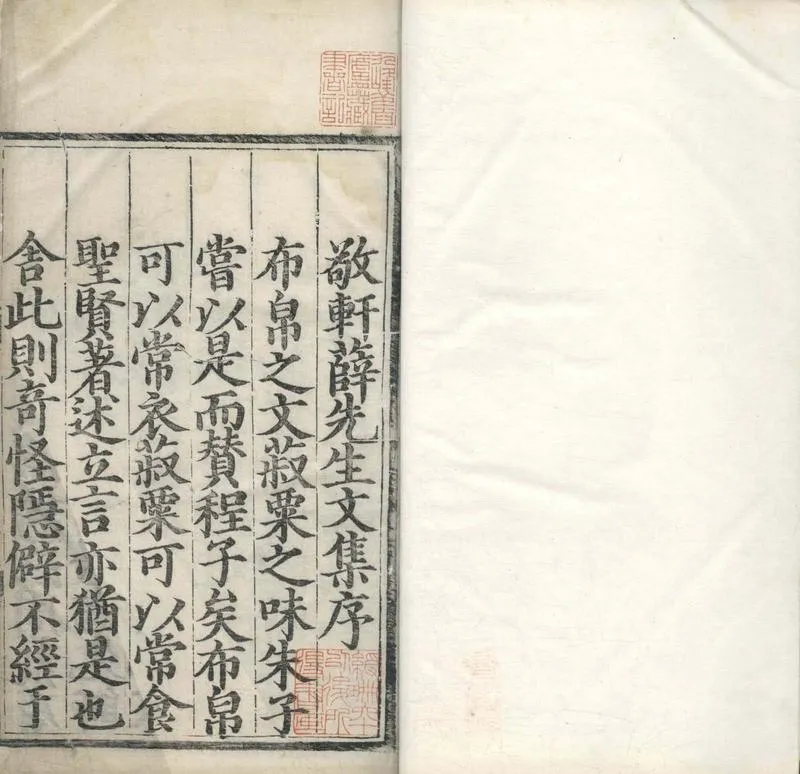 敬軒薛先生文集序
布帛之文菽粟之味朱子
嘗以是而賛程子矣布帛
可以常衣菽粟可以常食
聖賢著述立言亦猶是也
舍此則奇怪隱僻不經于